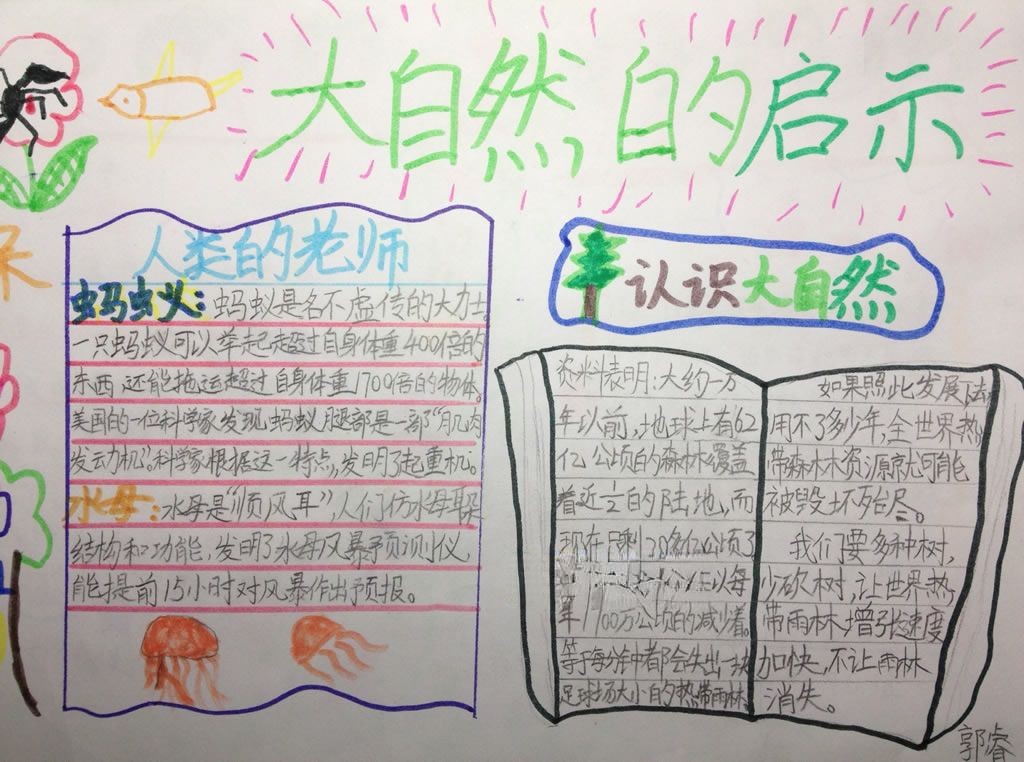 大自然的启示
人类的老师
蚂蚁：蚂蚁是名不虚传的大力士。
一只蚂蚁可以举起超过自身体重400倍的
东西，还能拖运超过自身体重1700倍的物体。
美国的一位科学家发现，蚂蚁腿部是一部“肌肉
发动机”。科学家根据这一特点，发明了起重机。
水母：水母是“顺风耳”，人们仿水母耳朵
结构和功能，发明了水母风暴予预测仪，
能提前15小时对风暴作出预报。
认识大自然
资料表明：大约一万
年以前，地球上有62
亿公顷的森林覆盖
着近1/2的陆地，而
现在只剩28多亿公顷了
以每
年1700万公顷的减少着。
等于每分钟都会失出一块
足球场大小的热带雨林。
如果照此发展下去，
用不了多少年，全世界热
带森林资源就可能
被毁坏殆尽。
我们要多种树，
少砍树，让世界热
带雨林增张速度
加快，不让雨林
消失。
郭睿